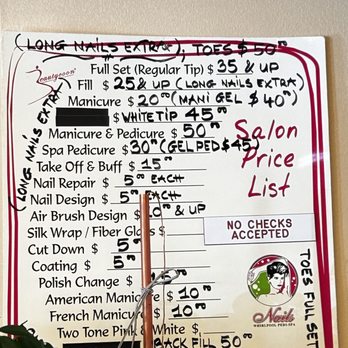 (LONG NAILS EXTRA), TOES $ 50⁰⁰
Full Set (Regular Tip) $ 35 & UP
Fill $ 25 & UP (LONG NAILS EXTRA)
Manicure $ 20⁰⁰ (MANI GEL $ 40⁰⁰)
$ WHITE TIP 45⁰⁰
Manicure & Pedicure $ 50⁰⁰
Spa Pedicure $ 30⁰⁰ (GEL PED $ 45)
Take Off & Buff $ 15⁰⁰
Nail Repair $ 5⁰⁰ EACH
Nail Design $ 5⁰⁰ EACH
Air Brush Design $ 10⁰⁰ & UP
Silk Wrap / Fiber Glass $
Cut Down $ 5⁰⁰
Coating $ 5⁰⁰
Polish Change $ 15⁰⁰
American Manicure $ 10⁰⁰
French Manicure $ 10⁰⁰
Two Tone Pink & White $
BACK FILL 50⁰⁰
(LONG NAILS EXTRA)
Salon
Price
List
NO CHECKS
ACCEPTED
Nails
WHIRLPOOL PEDI-SPA
TOES FULL SET